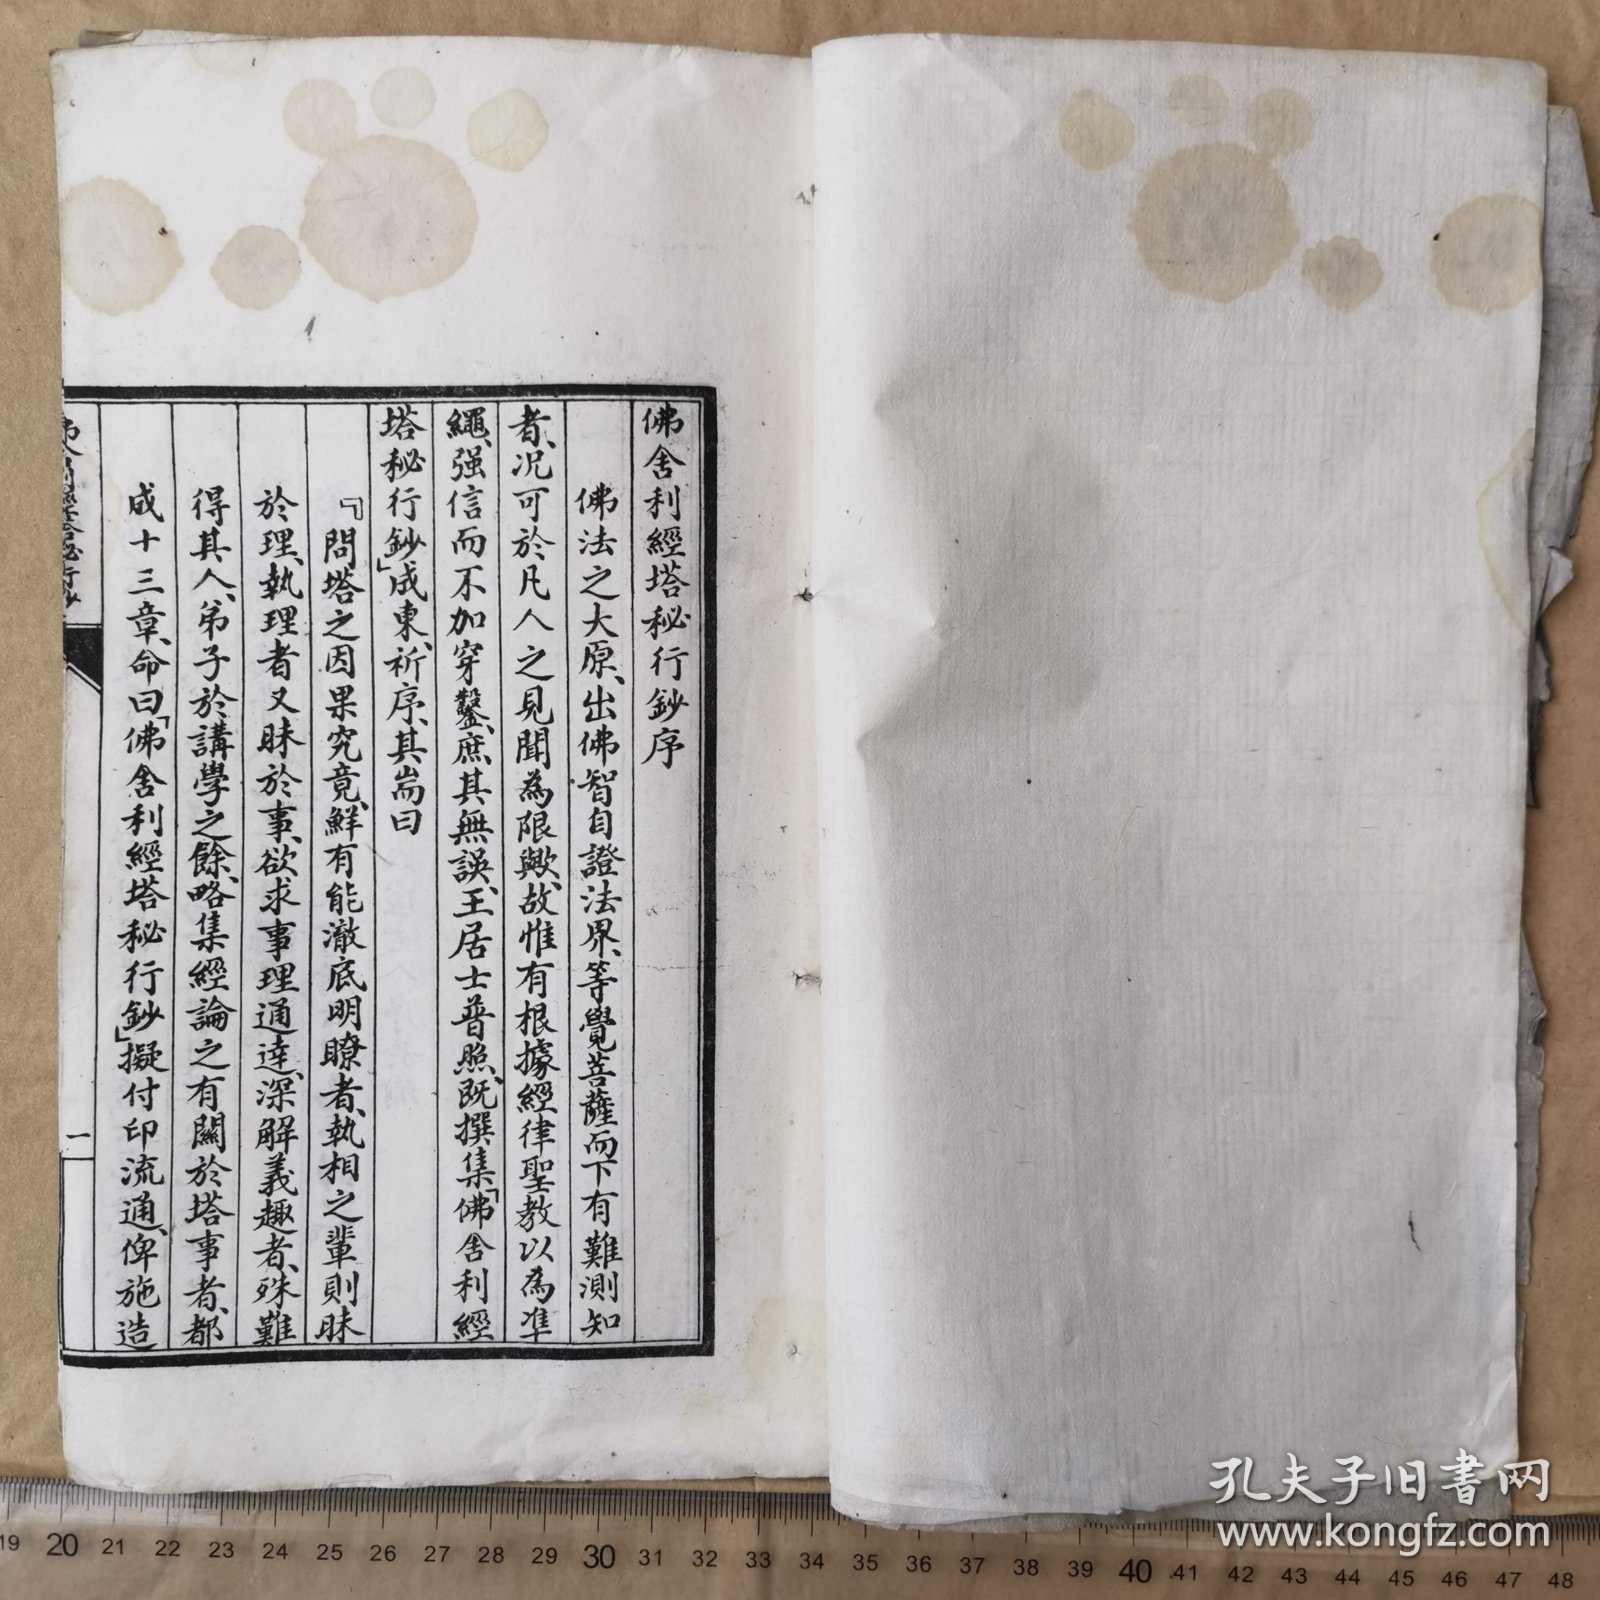 佛舍利經塔秘行鈔序
佛法之大原、出佛智自證法界、等覺菩薩而下有難測知
者、况可於凡人之見聞為限歟、故惟有根據經律聖教以為準
繩、强信而不加穿鑿、庶其無誤、王居士普照、既撰集「佛舍利經
塔秘行鈔」成東、祈序、其耑曰
『問塔之因果究竟、鮮有能澈底明瞭者、執相之輩則昧
於理、執理者又昧於事、欲求事理通達、深解義趣者、殊難
得其人、弟子於講學之餘、略集經論之有關於塔事者、都
成十三章、命曰「佛舍利經塔秘行鈔」擬付印流通、俾施造
一
孔夫子旧书网
www.kongfz.com
19 20 21 22 23 24 25 26 27 28 29 30 31 32 33 34 35 36 37 38 39 40 41 42 43 44 45 46 47 48